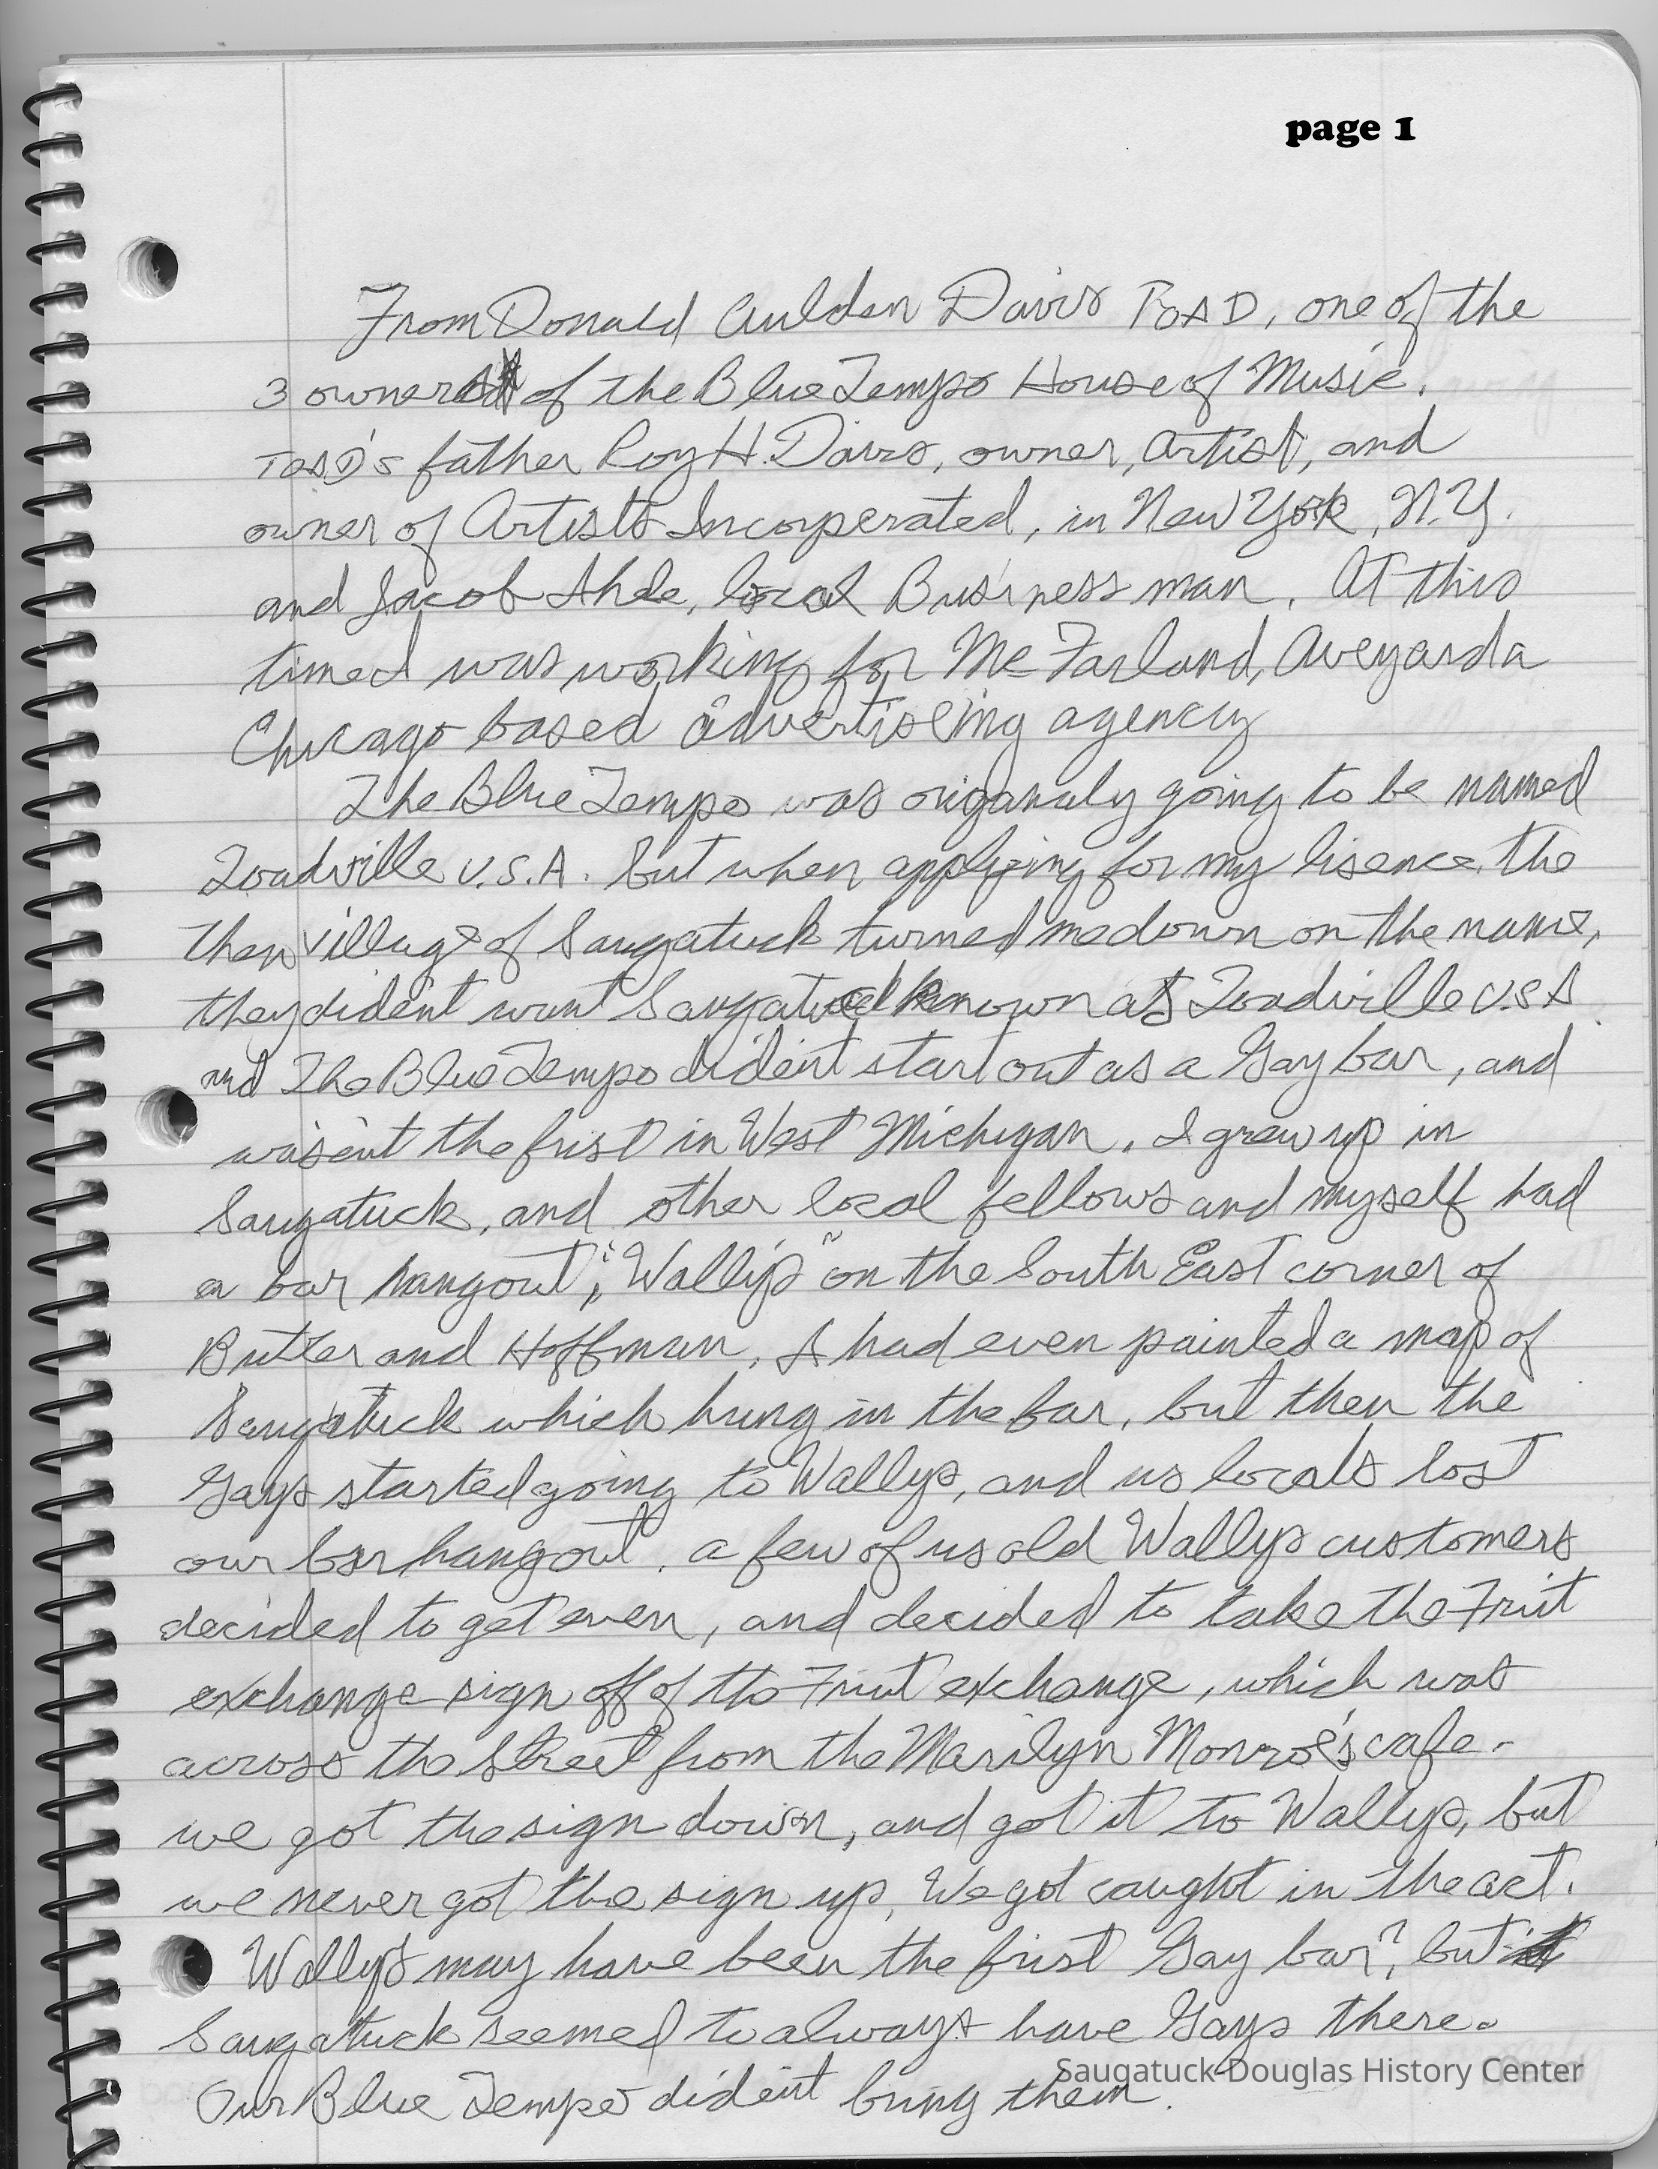 page 1
From Donald Aulden Davis ToAD, one of the
3 owners of the Blue Tempo House of Music.
ToAD's father Roy H. Davis, owner, Artist, and
owner of Artists Incorperated, in New York, N.Y.
and Jacob Ahde, local Business man. At this
time I was working for McFarland, Aveyard a
Chicago based advertiseing agency
The Blue Tempo was origanaly going to be named
Toadville U.S.A. but when applying for my lisence the
then village of Saugatuck turned me down on the name,
they dident want Saugatuck known as Toadville U.S.A.
and The Blue Tempo dident start out as a Gay bar, and
wasent the frist in West Michigan. I grew up in
Saugatuck, and other local fellows and myself had
a bar hangout, "Wally's" on the South East corner of
Butler and Hoffman. I had even painted a map of
Saugatuck which hung in the bar, but then the
Gays started going to Wallys, and us locals lost
our bar hangout. a few of us old Wallys customers
decided to get even, and decided to take the Fruit
exchange sign off of the Fruit exchange, which was
across the street from the Marilyn Monroe's cafe.
we got the sign down, and got it to Wallys, but
we never got the sign up, We got caught in the act.
Wallys may have been the frist Gay bar?, but
Saugatuck seemed to always have Gays there.
Our Blue Tempo dident bring them.
Saugatuck-Douglas History Center